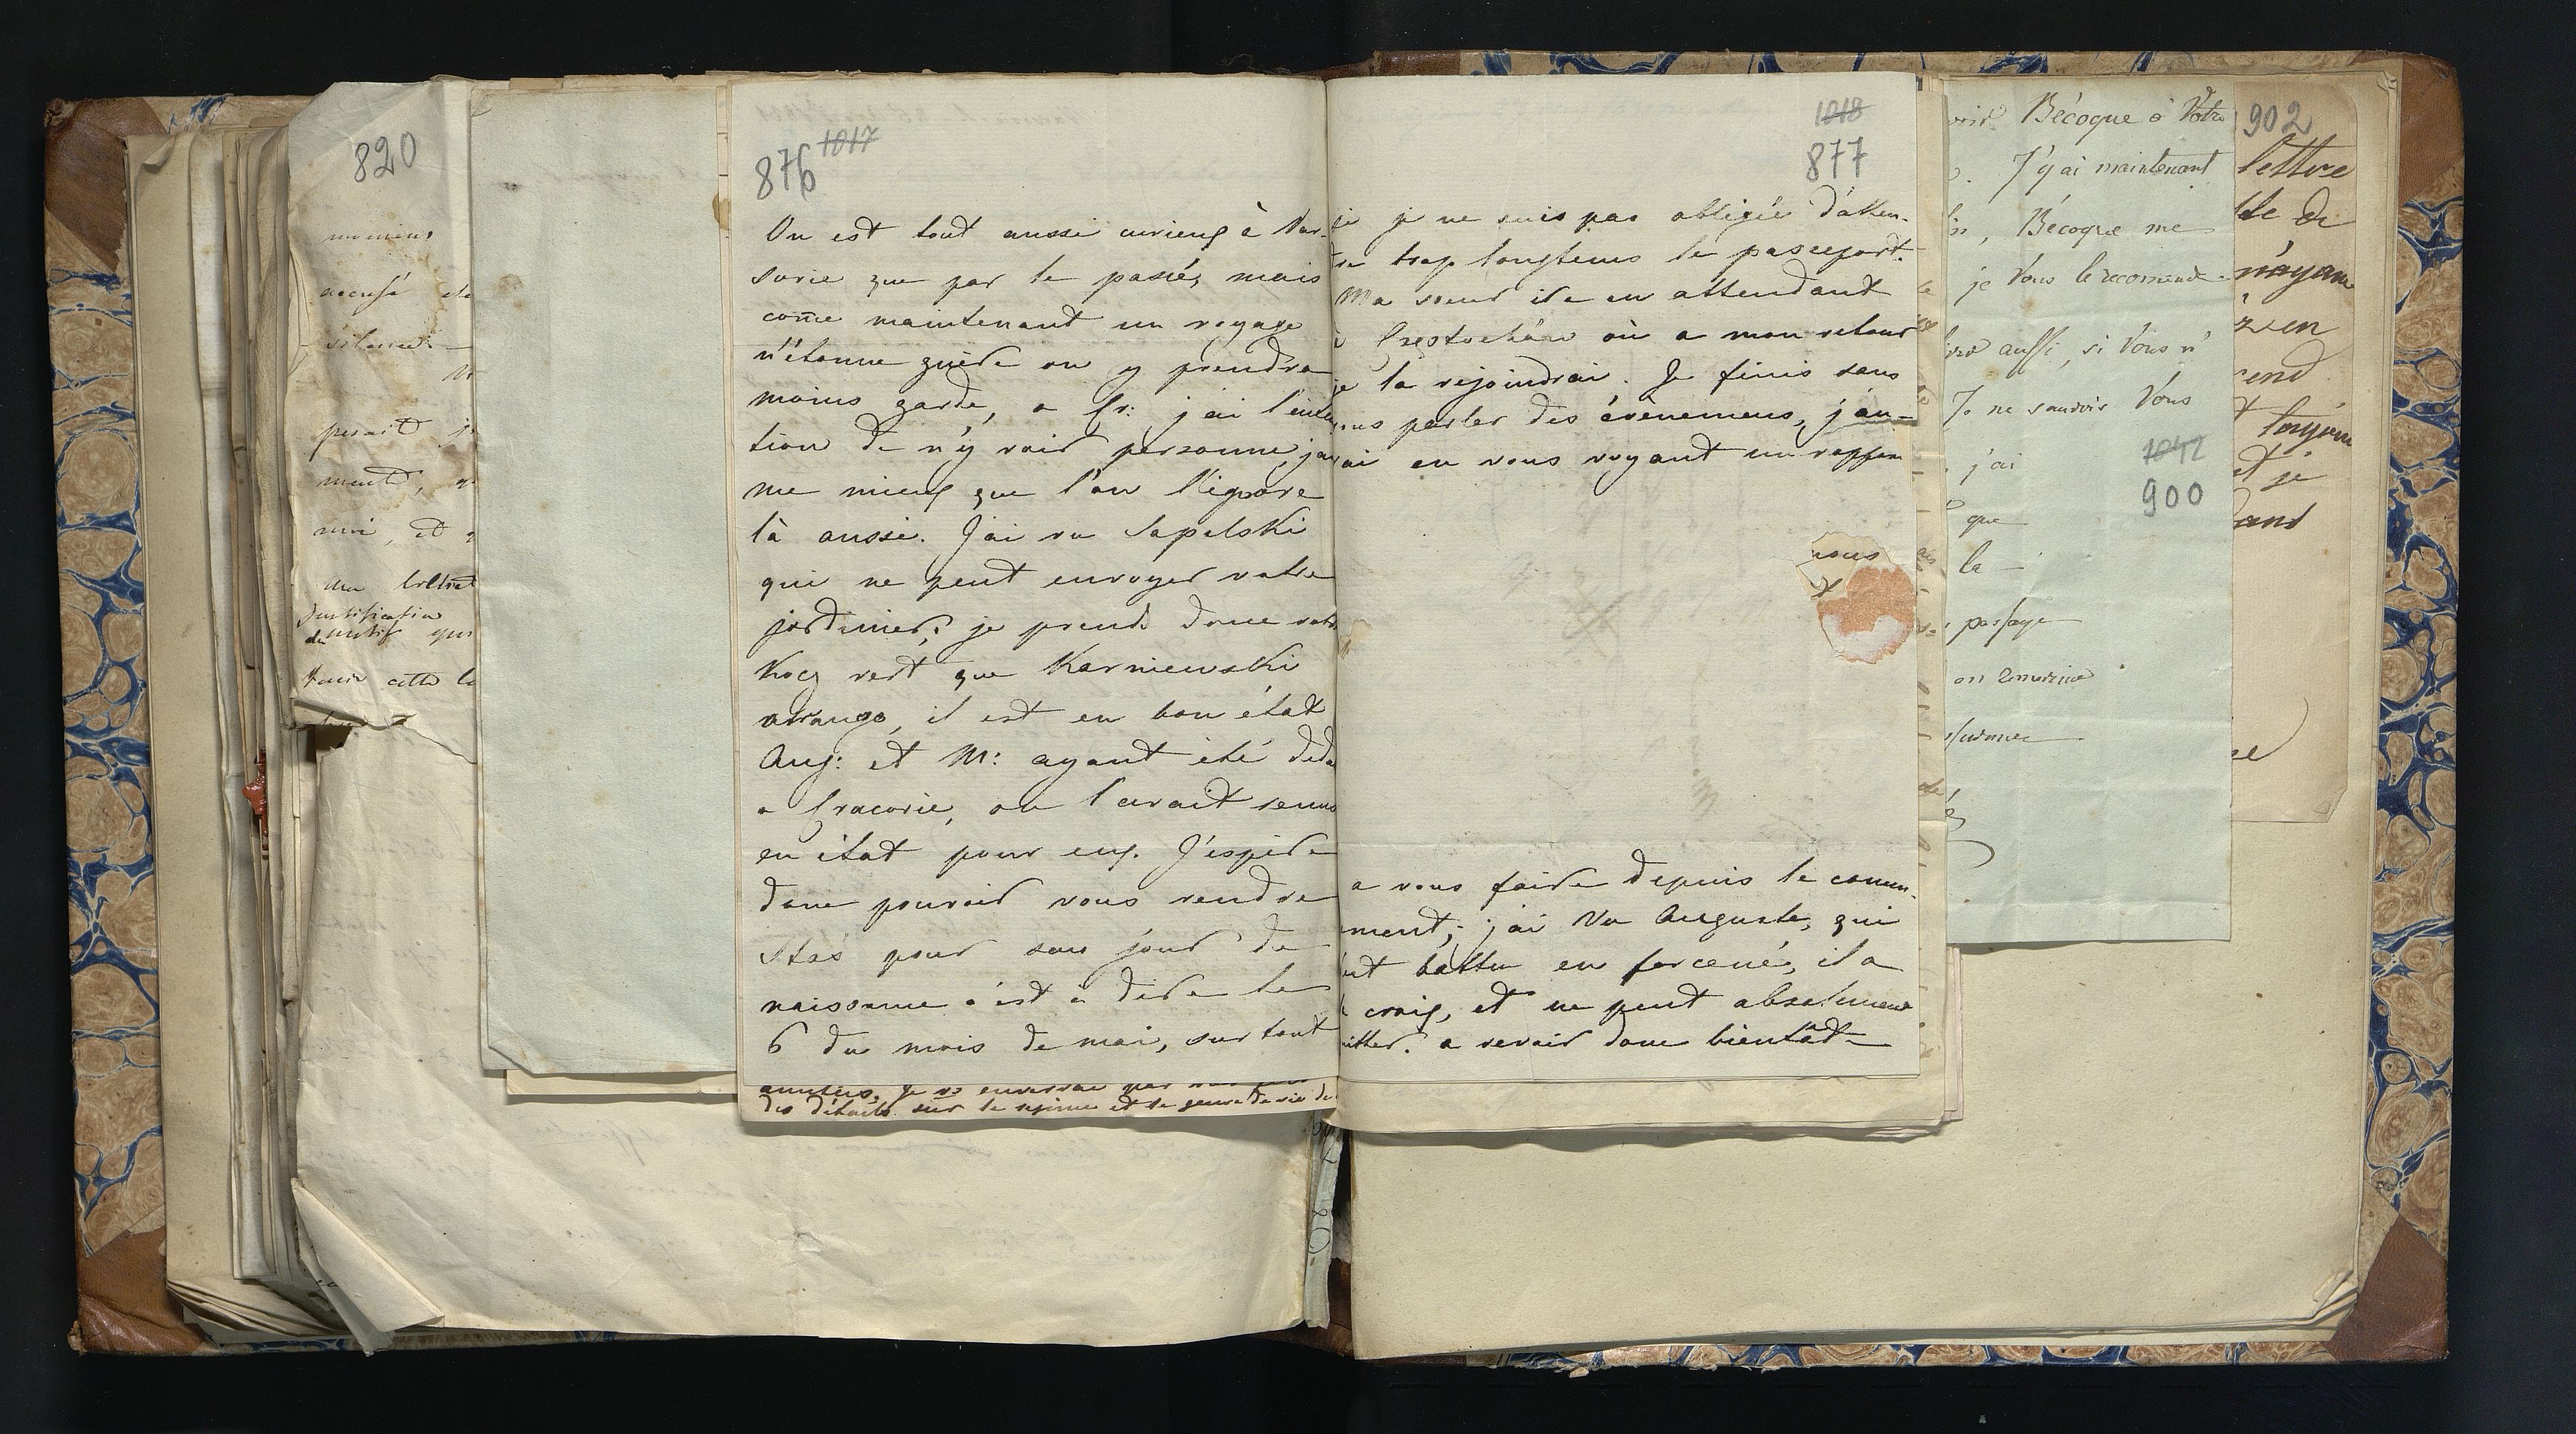 820
momens
accusé de
silence
perait j
ment, q
moi, et q
au billet
Justification
du motif qui
tenir cette le
876 1017
On est tout aussi curieux à Var-
sovie que par le passé, mais
come maintenant un voyage
n'étonne guère on y prendra
moins garde, a Cr: j'ai l'inten
tion de n'y voir personne, j'ai
me mieux que l'on l'ignore
là aussi. J'ai vu Sapalski
qui ne peut envoyer votre
jardinier, je prends donc votre
Kocz vert que Karniewski
arange, il est en bon état
Aug: et M: ayant été
a Cracovie, on l'avait remis
en état pour eux. J'espère
donc pouvoir vous rendre
Stas pour son jour de
naissance c'est à dire le
6 du mois de mai, sur tout
annters. Je vs enverrai par
des détails sur le régime et le genre de vie de
1018
877
si je ne suis pas obligée d'atten-
dre trop longtems le passeport.
Ma soeur ira en attendant
à Częstochów où a mon retour
je la rejoindrai. Je finis sans
vous parler des évènemens, j'au-
rai en vous voyant un rapport
vous
a vous faire depuis le comen-
ment; j'ai vu Auguste, qui
battu en forcené, il a
croix, et ne peut absolument
quitter. a revoir donc bientôt
Bécoque à Votre
J'y ai maintenant
Bécoque me
je Vous le recomende
aussi, si Vous n'
Je ne saurois Vous
j'ai
1042
900
que
la
passage
902
lettre
de
n'ayant
end
toujours
et je